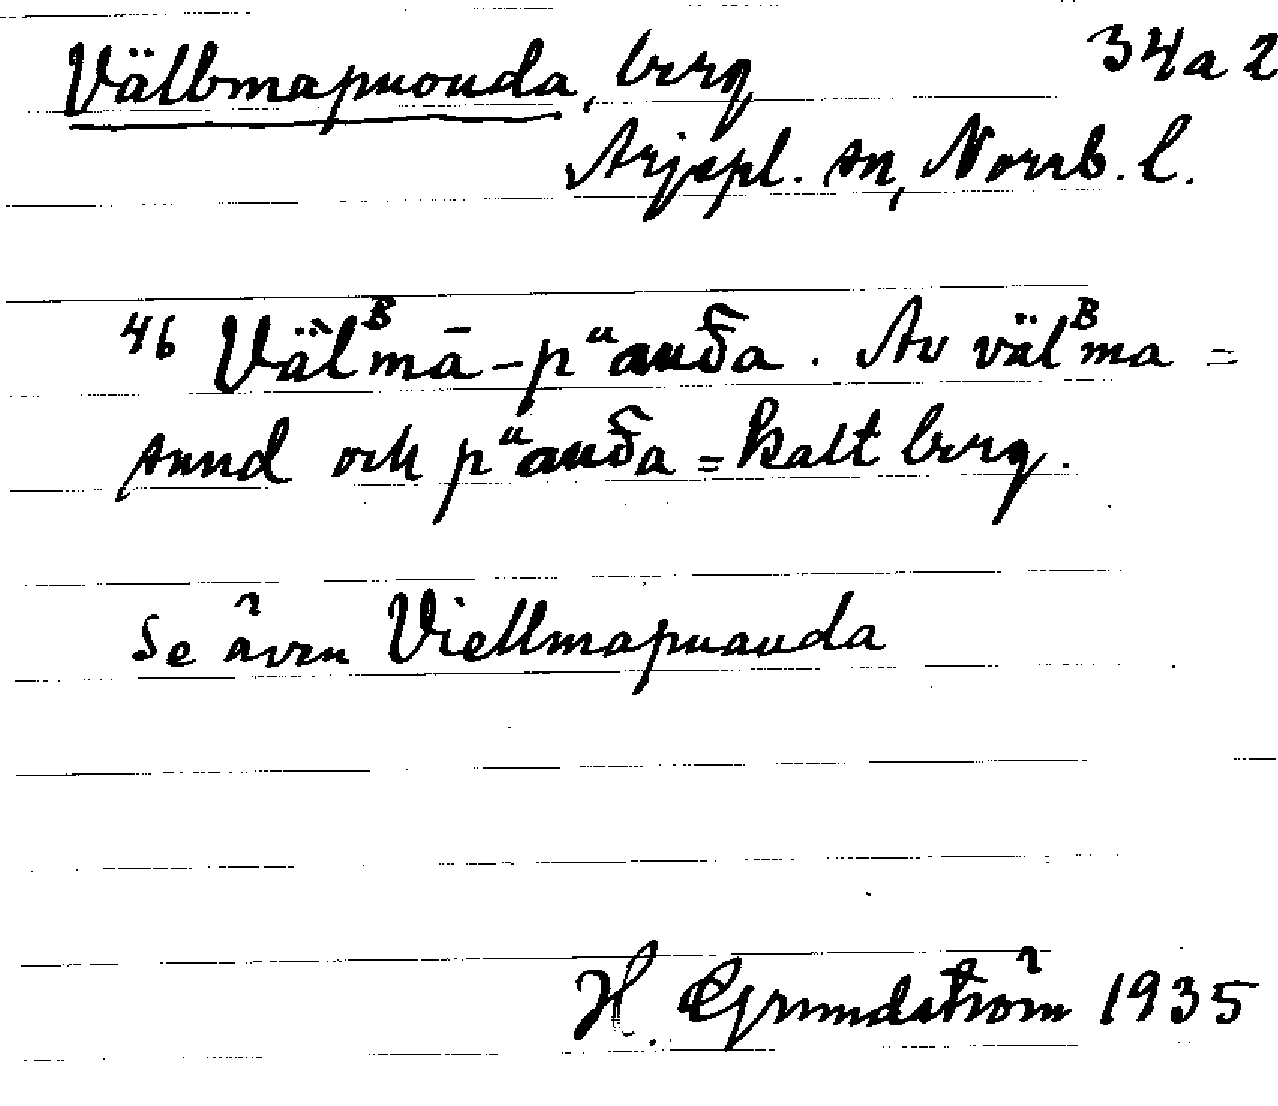 Välbmapuouda, berg 34a2
Arjepl. sn, Norrb. l.
46 Välᴮmā-pᵘauδa. Av välᴮma =
sund och pᵘauδa = kalt berg.
Se även Viellmapuauda
H. Grundström 1935